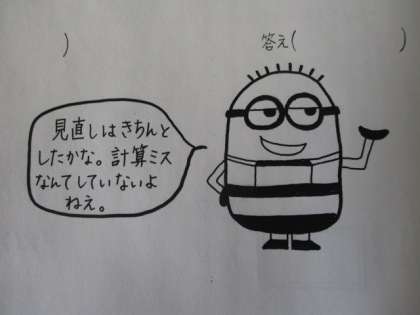 )
答え( )
見直しはきちんと
したかな。計算ミス
なんてしていないよ
ねえ。